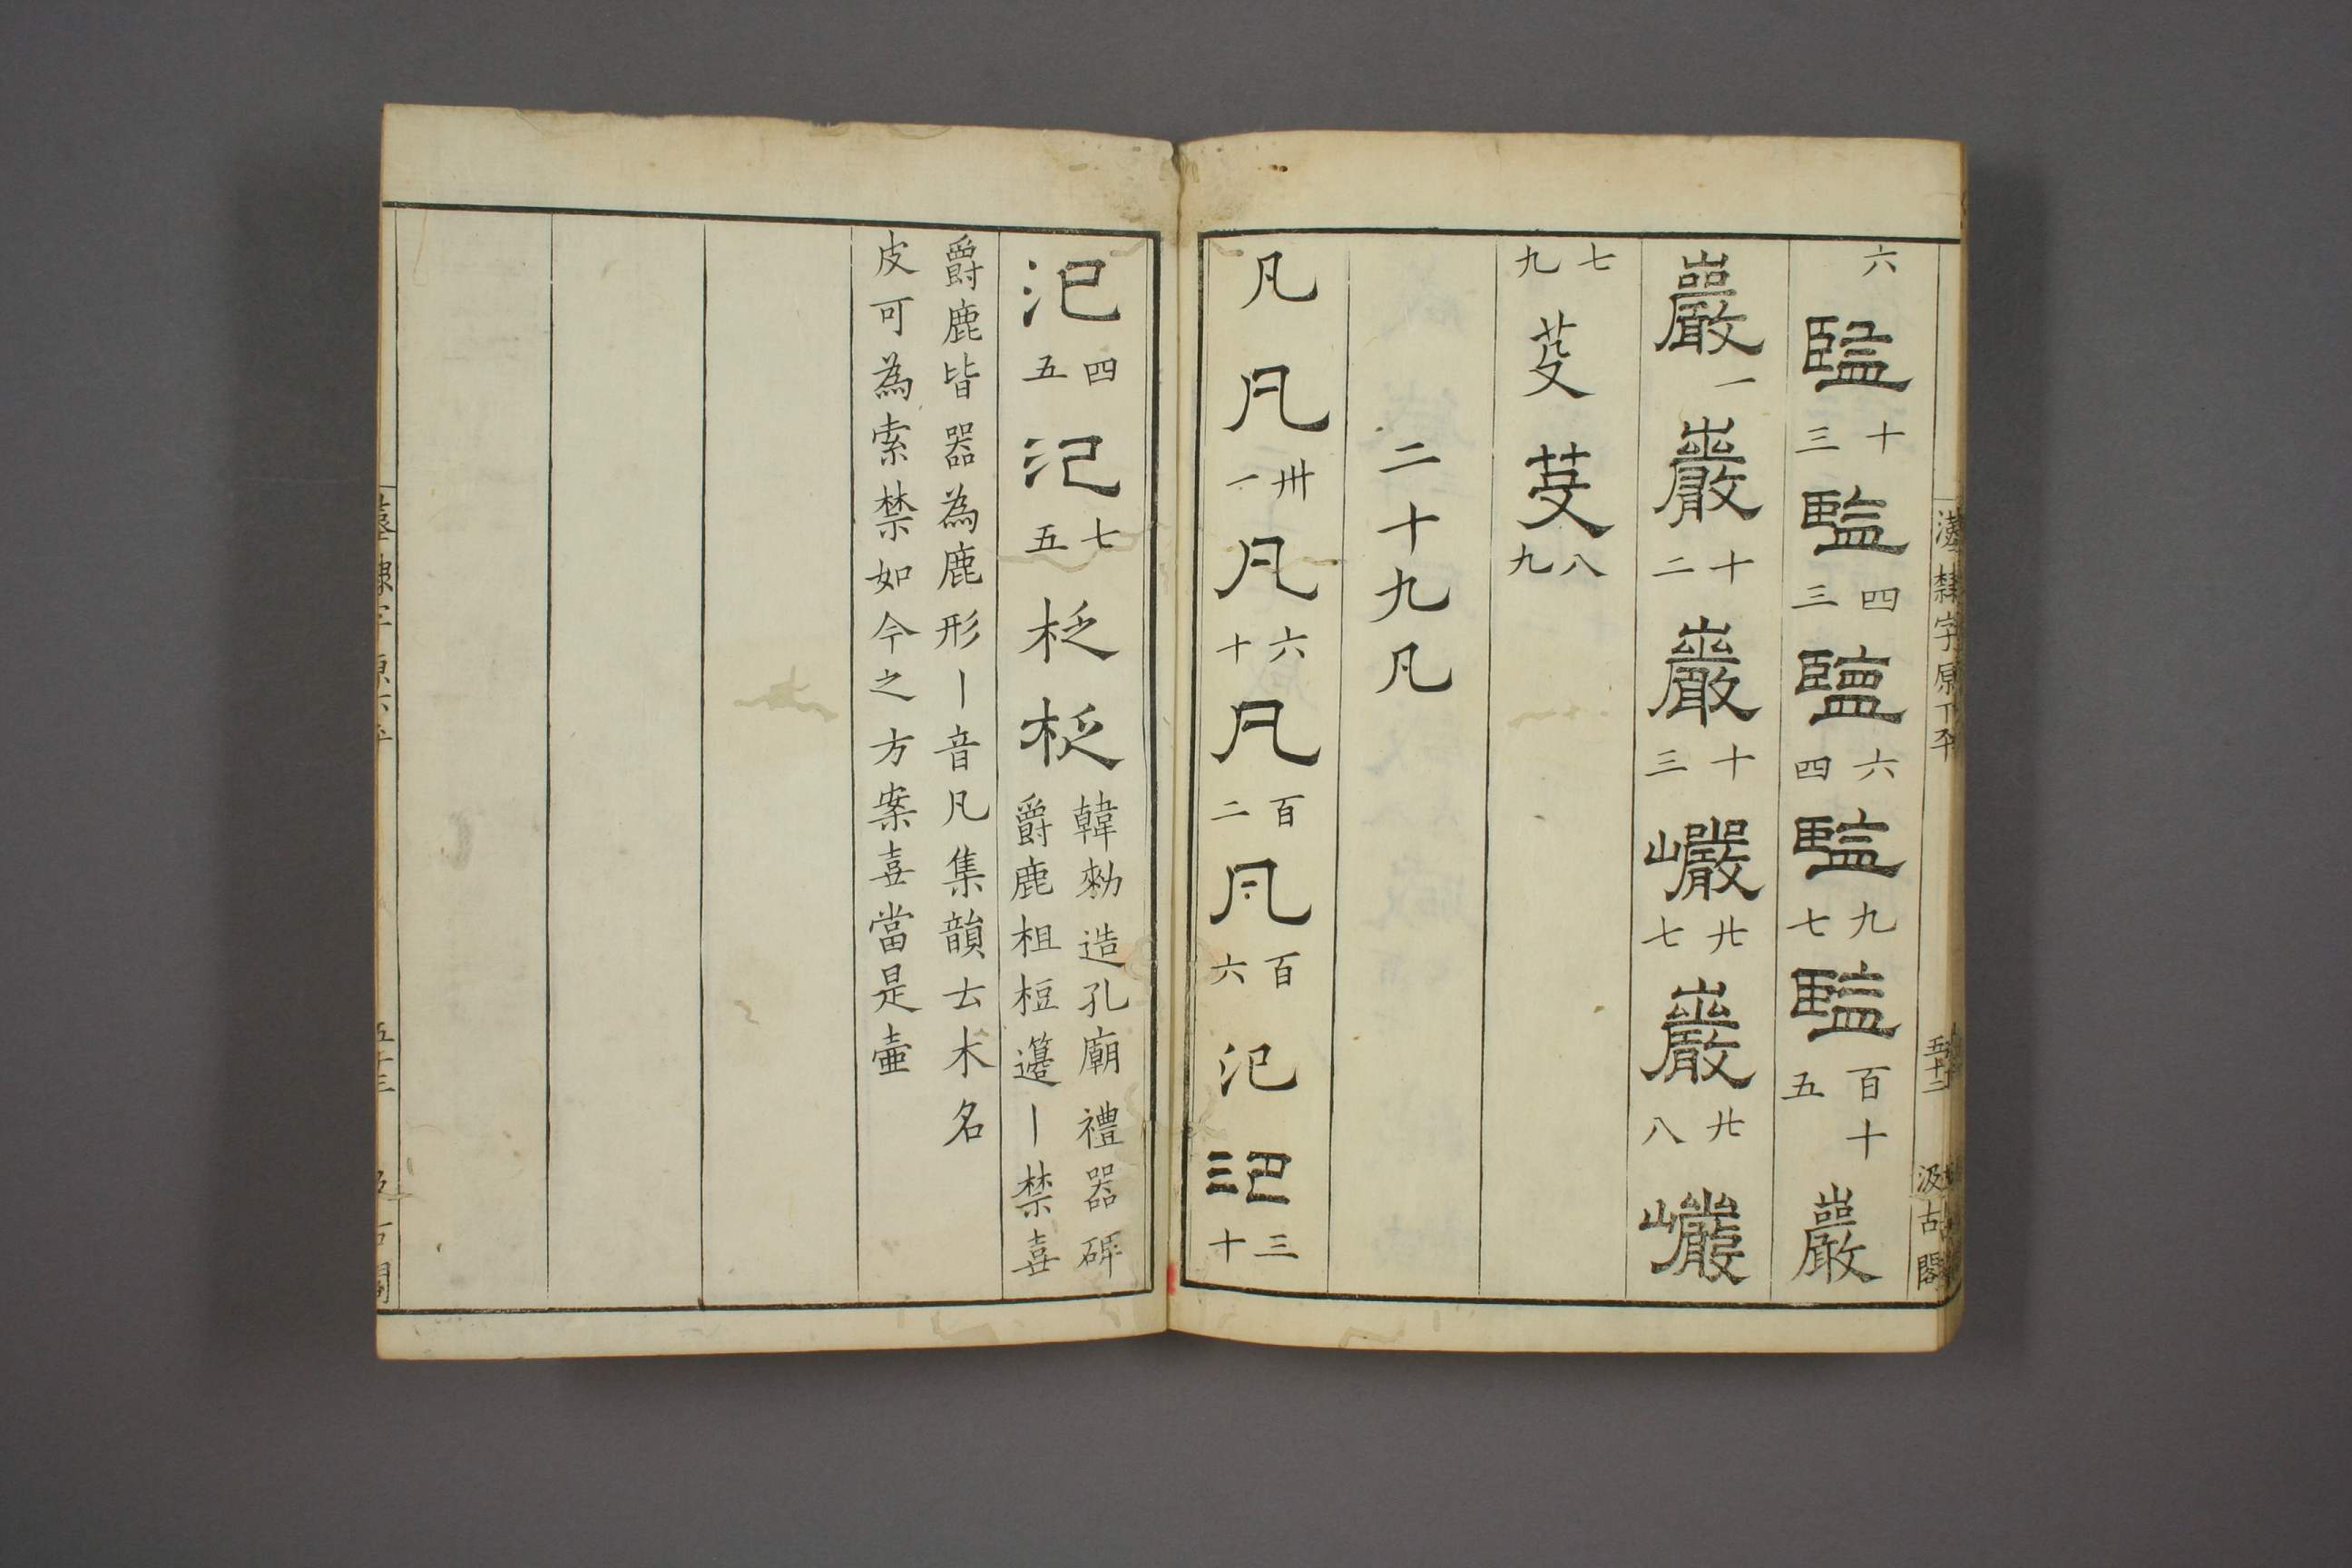 漢隸字原下平 五十二 汲古閣
六 監 十三 監 四三 監 六四 監 九七 監 百十五 巖
巖 一 巖 十二 巖 十三 巖 廿七 巖 廿八 巖
七九 芟 芟 八九
二十九凡
凡 凡 卅一 凡 六十 凡 百二 凡 百六 氾 氾 三十
氾 四五 氾 七五 柉 柉 韓勑造孔廟禮器碑
爵鹿柤梪籩丨禁喜
爵鹿皆器為鹿形丨音凡集韻云木名
皮可為索禁如今之方案喜當是壷